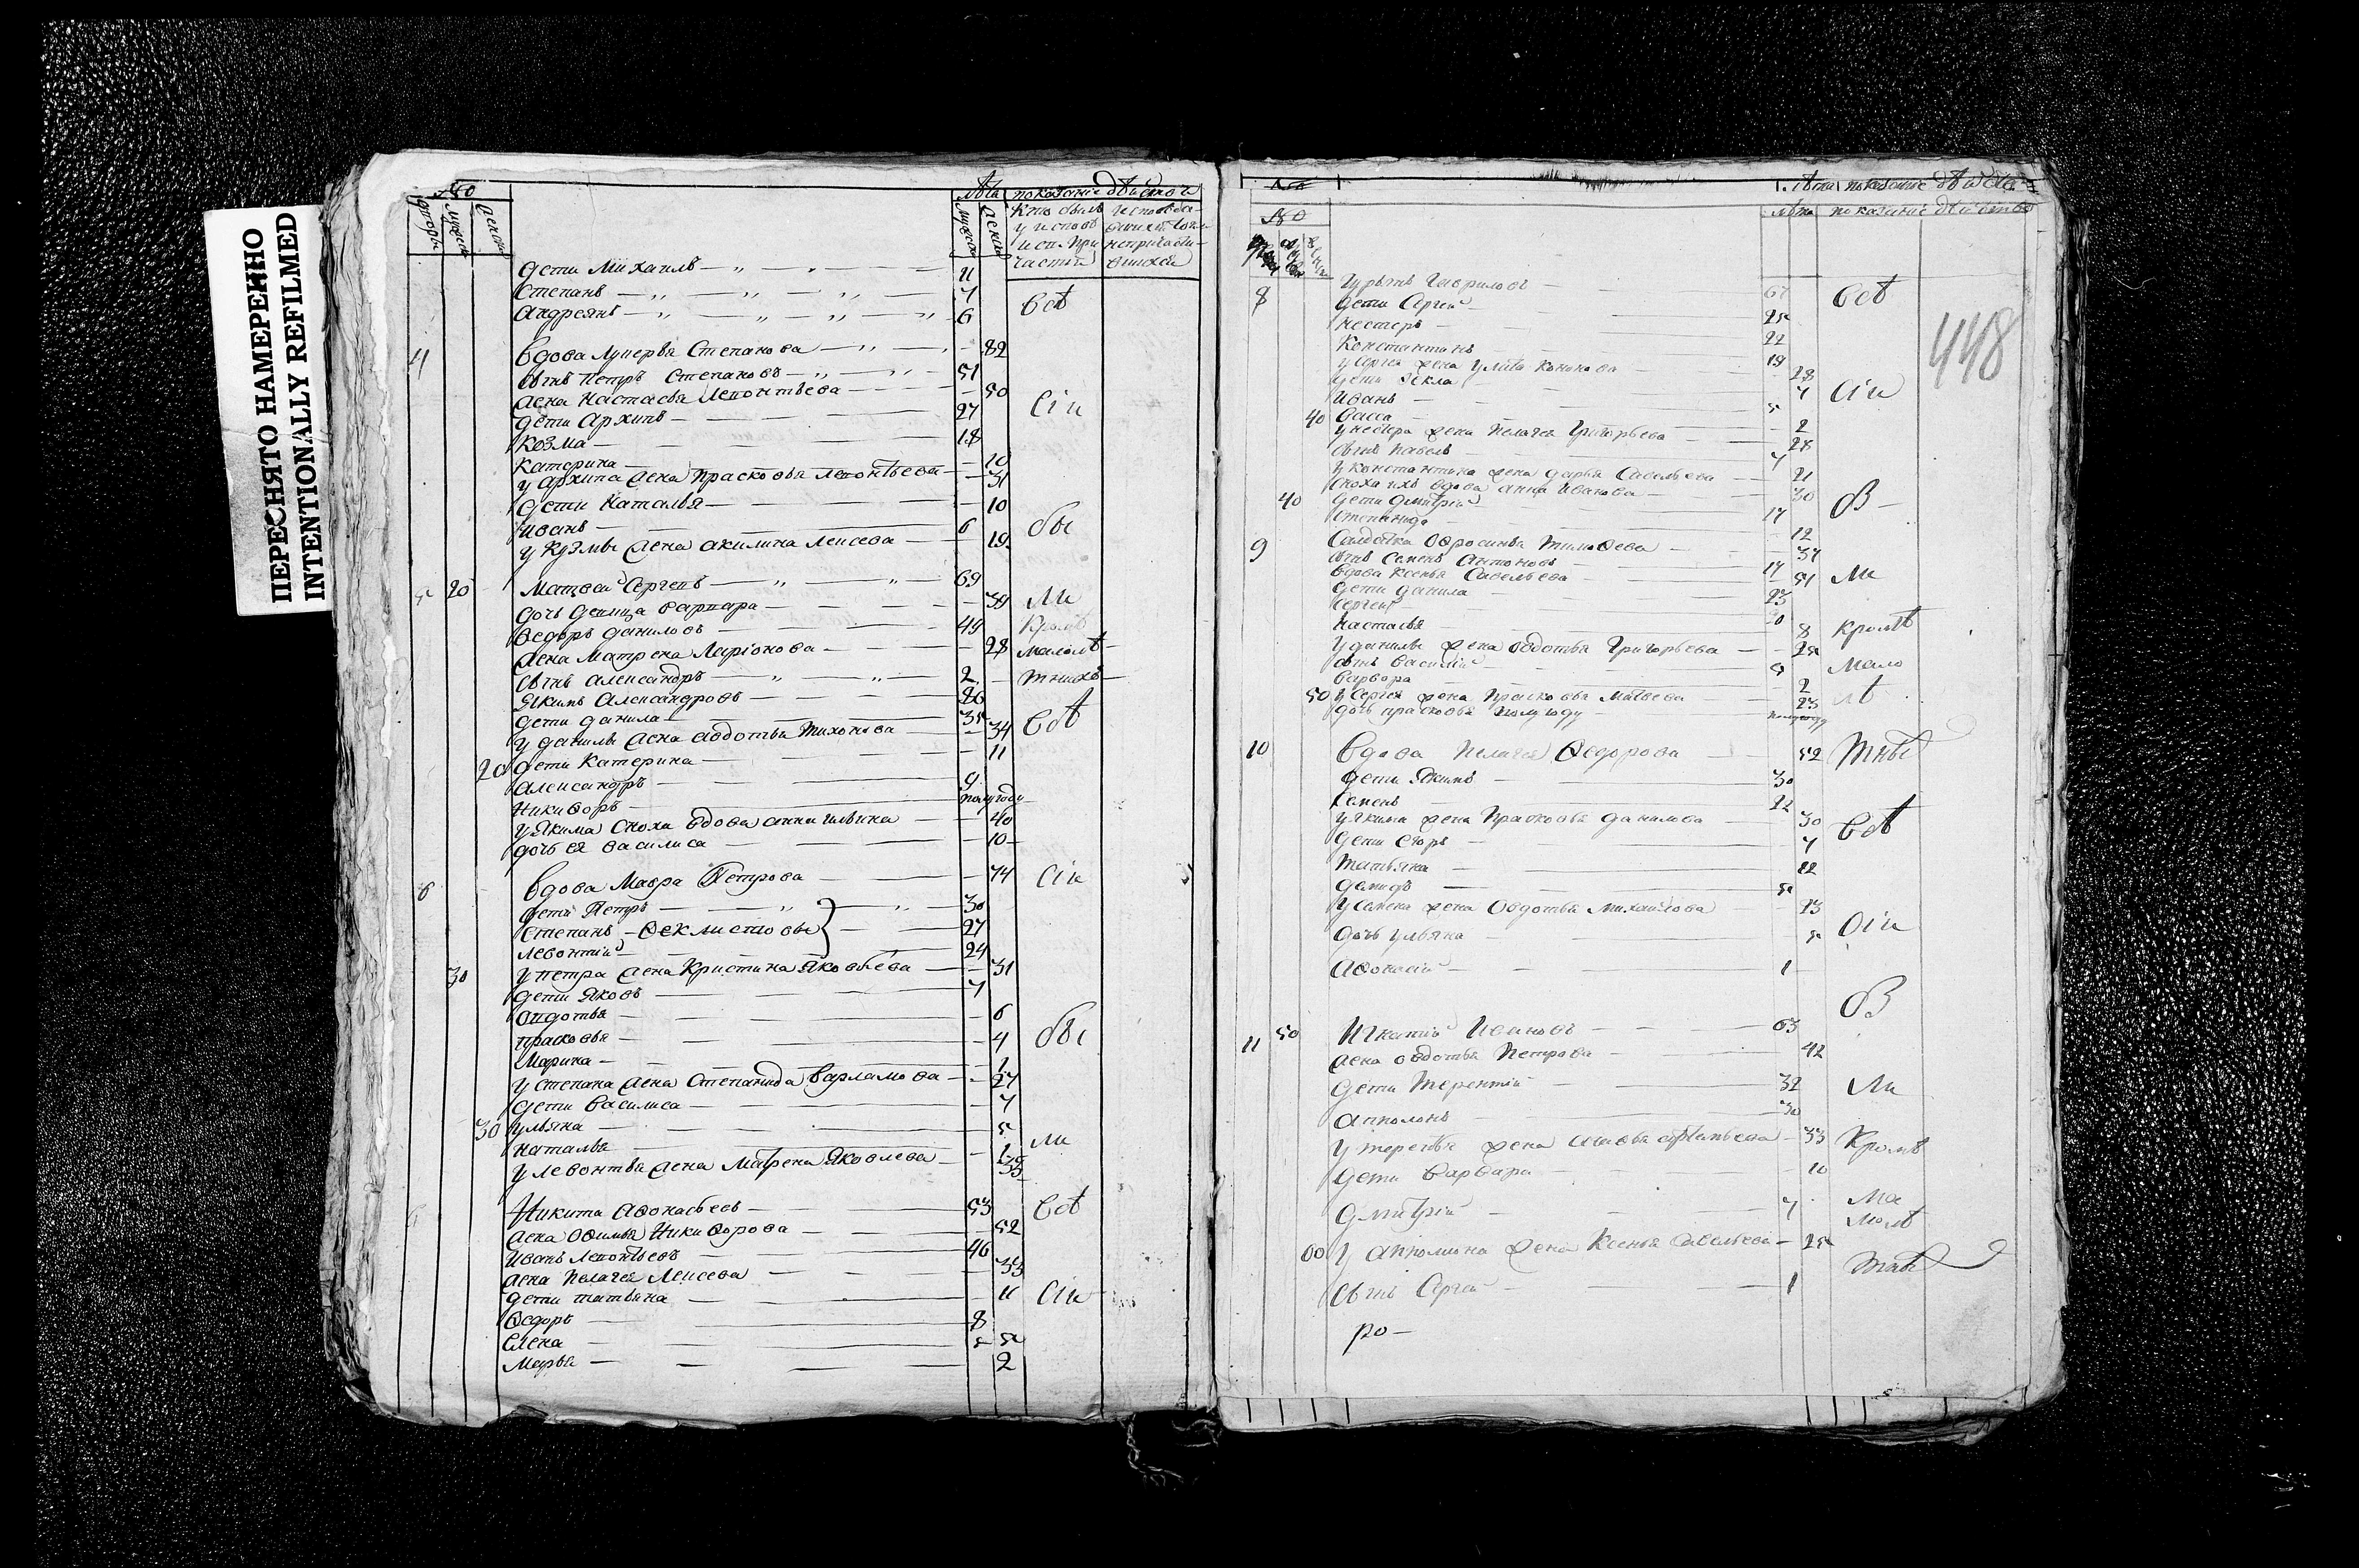 ПЕРЕСНЯТО НАМЕРЕННО
INTENTIONALLY REFILMED
№
лѣта показанiе дѣйства
дворы мужеск женск
мужеск женск Кто былъ исповѣда
у исповѣ
и с. При непричасти
частiи
дети Михаилъ 11
Степанъ 7
Андреянъ 6
всѣ
4 Вдова Лукерья Степанова 82
сынъ Петръ Степановъ 51
жена Настасья Леонтьева 50
дети Архипъ 27
сiи
Козма 18
Катерина 10
у Архипа жена Прасковья Леонтьева 31
дети Наталья 10
Иванъ 6
бы
у Кузмы жена Акилина Леисева 19
5 20 Матвей Сергеевъ 69
дочь девица Варвара 39
ли
Ѳедоръ Даниловъ 49
Кромѣ
жена Матрена Ларiонова 28
малолѣ
сынъ Александръ 2
тныхъ
Якимъ Александровъ 26
дети Данила 35
всѣ
у Данилы жена Авдотья Тихонова 34
20 дети Катерина 11
Александръ 9
Никиѳоръ полугоду
у Якима сноха вдова Анна Ильина 40
дочь ея Василиса 10
6 Вдова Мавра Петрова 74
сiи
дети Петръ 30
Степанъ Ѳеклистовы 27
Левонтiй 24
30 у Петра жена Кристина Яковлева 31
дети Яковъ 7
Овдотья 6
Прасковья 4
бы
Марина 1
у Степана жена Степанида Варламова 27
дети Василиса 7
30 Ульяна 5
Наталья 1
ли
у Левонтья жена Матрена Яковлева
Никита Аѳонасьевъ 53
всѣ
жена Офимья Никиѳорова 52
Иванъ Леонтьевъ 46
жена Пелагея Леисева 33
дети Татьяна 11
сiи
Ѳедоръ 8
Елена 5
Марья 2
№ лѣта показанiе дѣйства
№ лѣта показанiе дѣйство
448
Гавриловъ 67
всѣ
8 дети Сергей 25
Нестеръ 22
Константинъ 19
у Сергея жена Улита Кононова 28
дети Ѳекла 7
сiи
Иванъ 5
40 Васса 2
у Нестера жена Пелагея Григорьева 28
сынъ Павелъ 7
у Константина жена Дарья Савельева 21
сноха ихъ вдова Анна Иванова 30
40 дети Дмитрiй 17
Степанида 12
9 Салдатка Офросинья Тимоѳеева 37
сынъ Семенъ Антоновъ 17
Вдова Ксенья Савельева 51
ли
дети Данила 23
Сергей 20
Настасья 8
кромѣ
у Данилы жена Овдотья Григорьева 25
сынъ Василiй
мало
Варвара 2
50 у Сергея жена Прасковья Матвеева 23
лѣ
дочь Прасковья полугоду
10 Вдова Пелагея Ѳедорова 52
тны
дети Якимъ 30
Семенъ 22
у Якима жена Прасковья Данилова 30
всѣ
дети Егоръ 7
Татьяна
Демидъ 5
у Семена жена Овдотья Михайлова 23
дочь Ульяна 5
Аѳонасiй 1
11 50 Игнатiй Ивановъ 63
жена Овдотья Петрова 42
дети Терентiй 32
ли
Апполонъ 30
у Терентья жена 33
Кромѣ
дети Варвара 10
Дмитрiй 7
ма
молѣ
60 у Апполона жена Ксенья Савельева 25
сынъ Сергей 1
ро